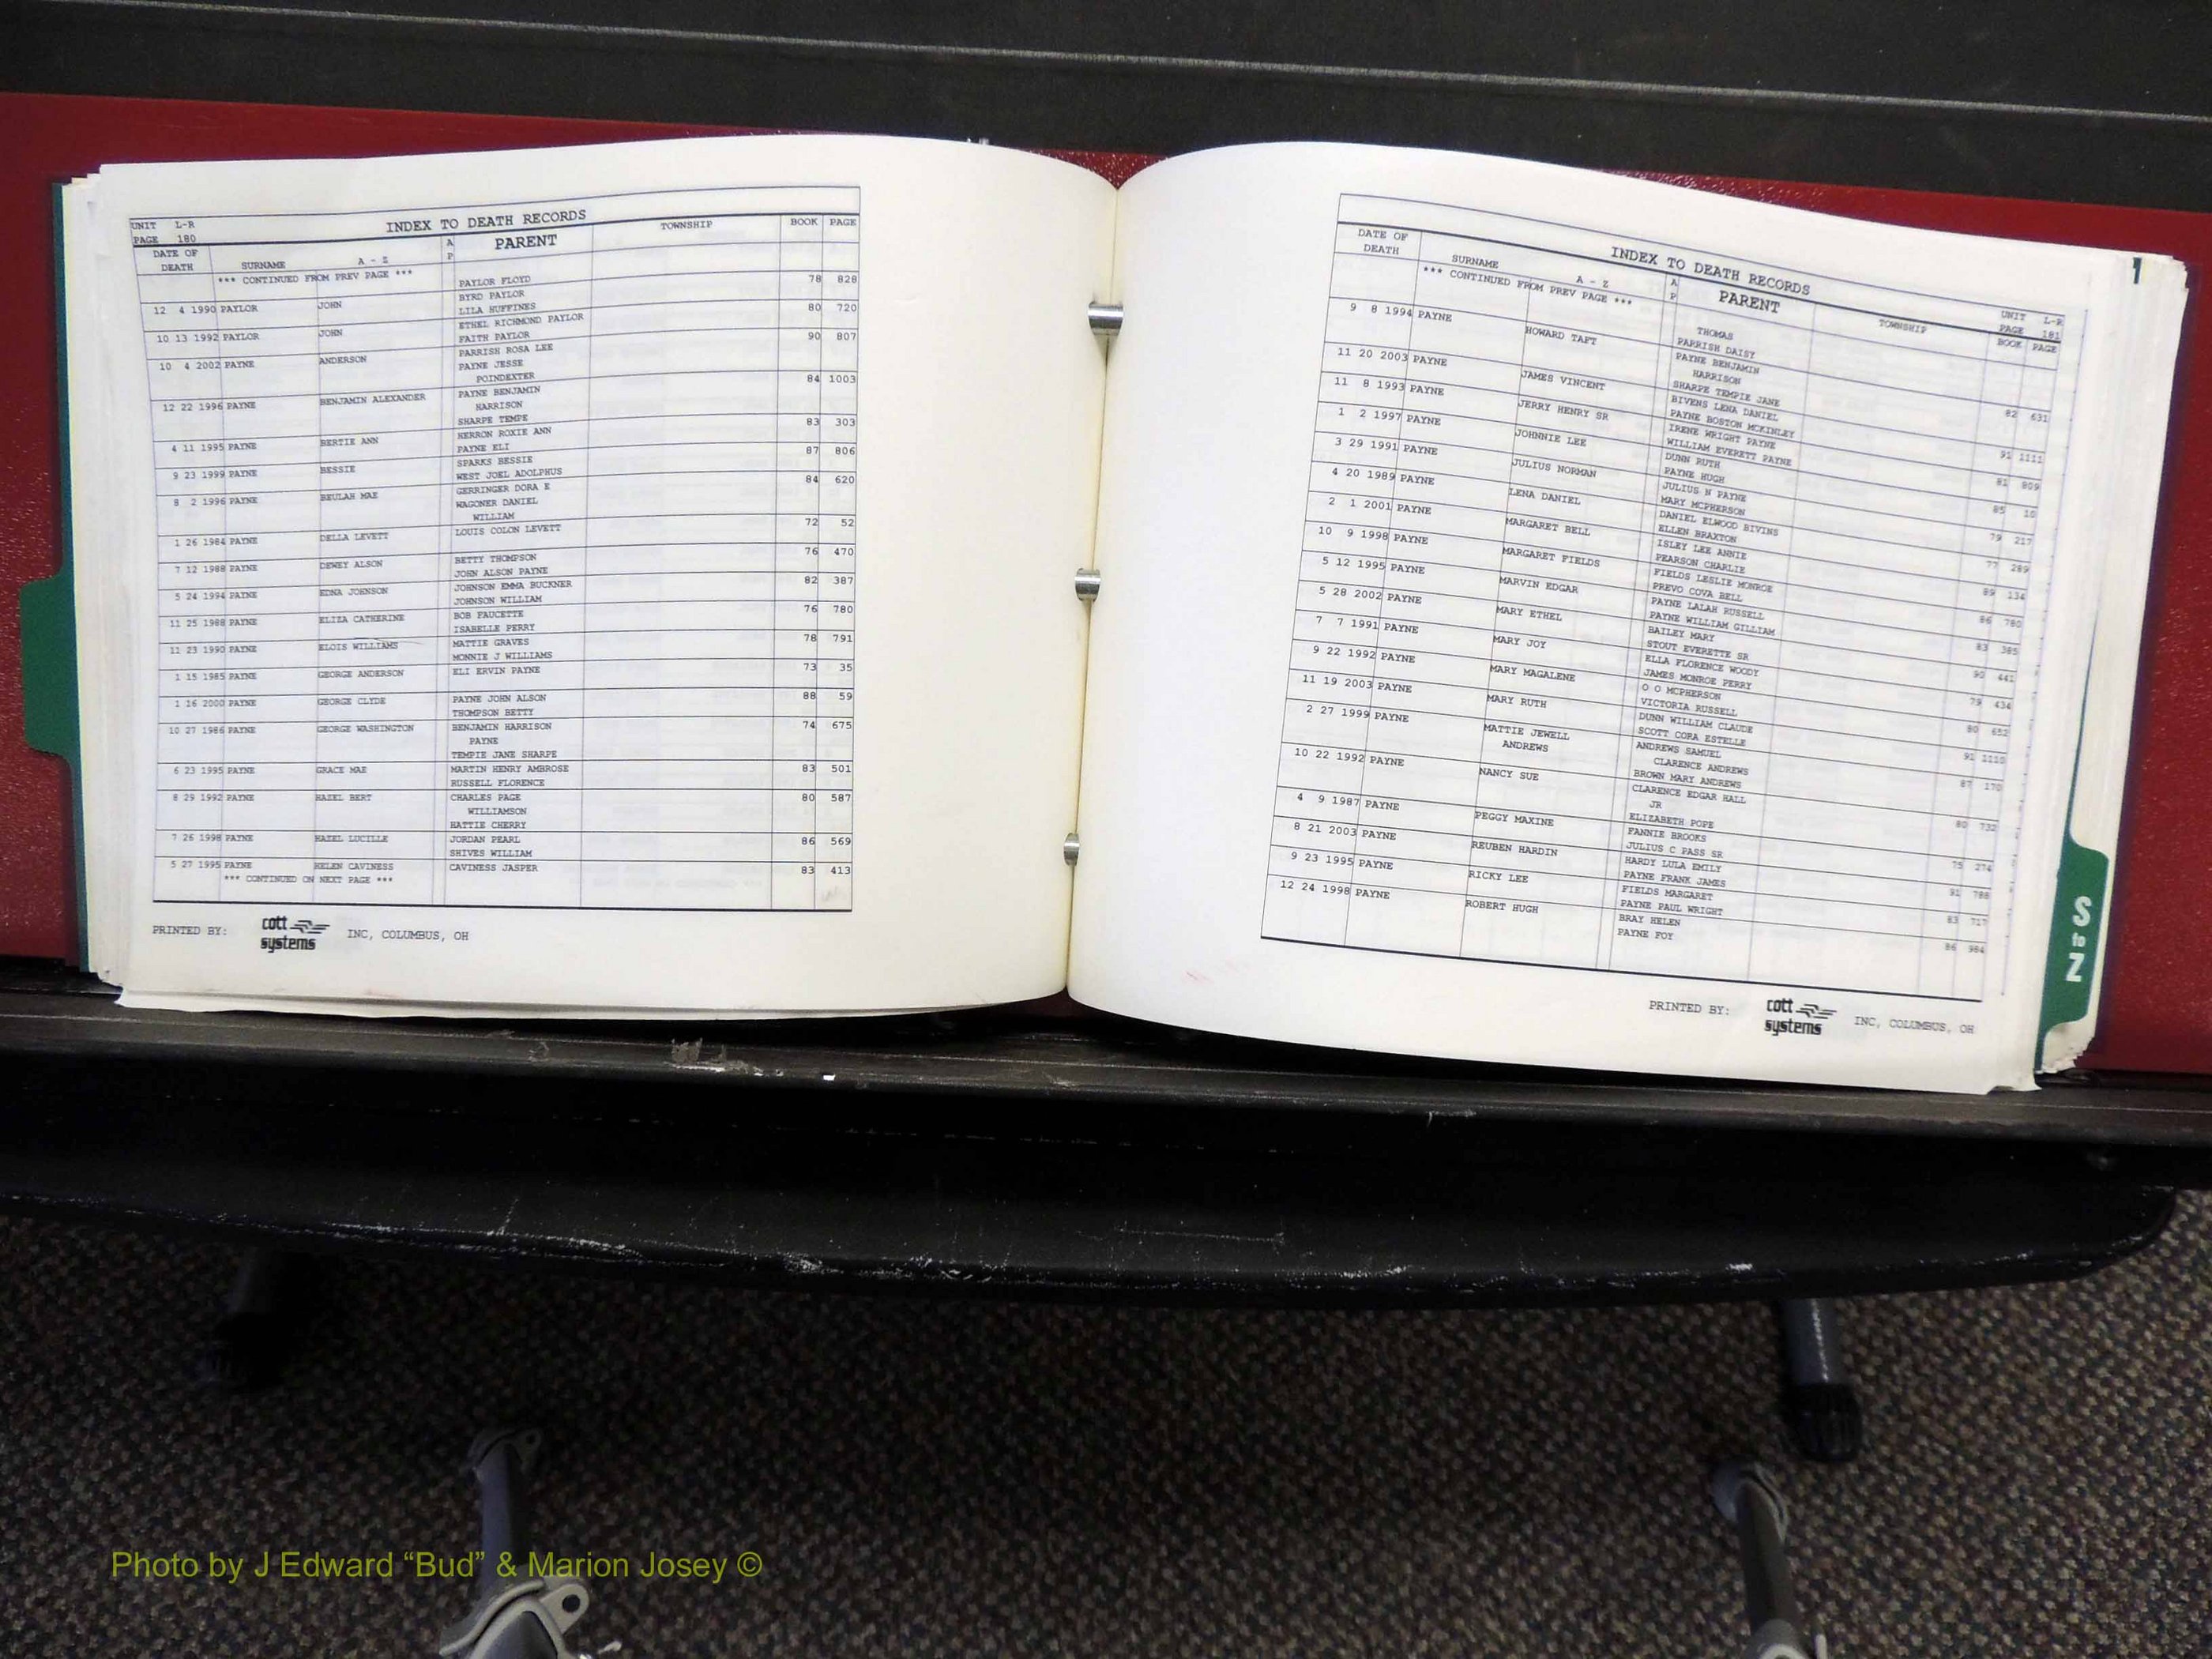 UNIT L-R
PAGE 180
INDEX TO DEATH RECORDS
DATE OF DEATH SURNAME A - Z A P PARENT TOWNSHIP BOOK PAGE
*** CONTINUED FROM PREV PAGE *** PAYLOR FLOYD 78 828
BYRD PAYLOR
12 4 1990 PAYLOR JOHN LILA HUFFINES 80 720
ETHEL RICHMOND PAYLOR
10 13 1992 PAYLOR JOHN FAITH PAYLOR 90 807
PARRISH ROSA LEE
10 4 2002 PAYNE ANDERSON PAYNE JESSE
POINDEXTER 84 1003
12 22 1996 PAYNE BENJAMIN ALEXANDER PAYNE BENJAMIN
HARRISON
SHARPE TEMPE 83 303
4 11 1995 PAYNE BERTIE ANN HERRON ROXIE ANN
PAYNE ELI 87 806
9 23 1999 PAYNE BESSIE SPARKS BESSIE
WEST JOEL ADOLPHUS 84 620
8 2 1996 PAYNE BEULAH MAE GERRINGER DORA E
WAGONER DANIEL
WILLIAM 72 52
1 26 1984 PAYNE DELLA LEVETT LOUIS COLON LEVETT
76 470
7 12 1988 PAYNE DEWEY ALSON BETTY THOMPSON
JOHN ALSON PAYNE 82 387
5 24 1994 PAYNE EDNA JOHNSON JOHNSON EMMA BUCKNER
JOHNSON WILLIAM 76 780
11 25 1988 PAYNE ELIZA CATHERINE BOB FAUCETTE
ISABELLE PERRY 78 791
11 23 1990 PAYNE ELOIS WILLIAMS MATTIE GRAVES
MONNIE J WILLIAMS
1 15 1985 PAYNE GEORGE ANDERSON ELI ERVIN PAYNE 73 35
1 16 2000 PAYNE GEORGE CLYDE PAYNE JOHN ALSON 88 59
THOMPSON BETTY
10 27 1986 PAYNE GEORGE WASHINGTON BENJAMIN HARRISON 74 675
PAYNE
TEMPIE JANE SHARPE
6 23 1995 PAYNE GRACE MAE MARTIN HENRY AMBROSE 83 501
RUSSELL FLORENCE
8 29 1992 PAYNE HAZEL BERT CHARLES PAGE 80 587
WILLIAMSON
HATTIE CHERRY
7 26 1998 PAYNE HAZEL LUCILLE JORDAN PEARL 86 569
SHIVES WILLIAM
5 27 1995 PAYNE HELEN CAVINESS CAVINESS JASPER 83 413
*** CONTINUED ON NEXT PAGE ***
PRINTED BY: cott systems INC, COLUMBUS, OH
INDEX TO DEATH RECORDS
UNIT L-R
PAGE 181
DATE OF DEATH SURNAME A - Z A P PARENT TOWNSHIP BOOK PAGE
*** CONTINUED FROM PREV PAGE *** THOMAS
PARRISH DAISY
9 8 1994 PAYNE HOWARD TAFT PAYNE BENJAMIN 82 631
HARRISON
SHARPE TEMPIE JANE
11 20 2003 PAYNE JAMES VINCENT BIVENS LENA DANIEL 91 1111
PAYNE BOSTON MCKINLEY
11 8 1993 PAYNE JERRY HENRY SR IRENE WRIGHT PAYNE 81 809
WILLIAM EVERETT PAYNE
1 2 1997 PAYNE JOHNNIE LEE DUNN RUTH 85 10
PAYNE HUGH
3 29 1991 PAYNE JULIUS NORMAN JULIUS N PAYNE 79 217
MARY MCPHERSON
4 20 1989 PAYNE LENA DANIEL DANIEL ELWOOD BIVINS 77 289
ELLEN BRAXTON
2 1 2001 PAYNE MARGARET BELL ISLEY LEE ANNIE 89 134
PEARSON CHARLIE
10 9 1998 PAYNE MARGARET FIELDS FIELDS LESLIE MONROE 86 780
PREVO COVA BELL
5 12 1995 PAYNE MARVIN EDGAR PAYNE LALAH RUSSELL 83 385
PAYNE WILLIAM GILLIAM
5 28 2002 PAYNE MARY ETHEL BAILEY MARY 90 441
STOUT EVERETTE SR
7 7 1991 PAYNE MARY JOY ELLA FLORENCE WOODY 79 434
JAMES MONROE PERRY
9 22 1992 PAYNE MARY MAGALENE O O MCPHERSON 80 652
VICTORIA RUSSELL
11 19 2003 PAYNE MARY RUTH DUNN WILLIAM CLAUDE 91 1110
SCOTT CORA ESTELLE
2 27 1999 PAYNE MATTIE JEWELL ANDREWS SAMUEL 87 170
ANDREWS CLARENCE ANDREWS
BROWN MARY ANDREWS
10 22 1992 PAYNE NANCY SUE CLARENCE EDGAR HALL 80 732
JR
ELIZABETH POPE
4 9 1987 PAYNE PEGGY MAXINE FANNIE BROOKS 75 274
JULIUS C PASS SR
8 21 2003 PAYNE REUBEN HARDIN HARDY LULA EMILY 91 788
PAYNE FRANK JAMES
9 23 1995 PAYNE RICKY LEE FIELDS MARGARET 83 717
PAYNE PAUL WRIGHT
12 24 1998 PAYNE ROBERT HUGH BRAY HELEN 86 984
PAYNE FOY
PRINTED BY: cott systems INC, COLUMBUS, OH
S to Z
Photo by J Edward “Bud” & Marion Josey ©